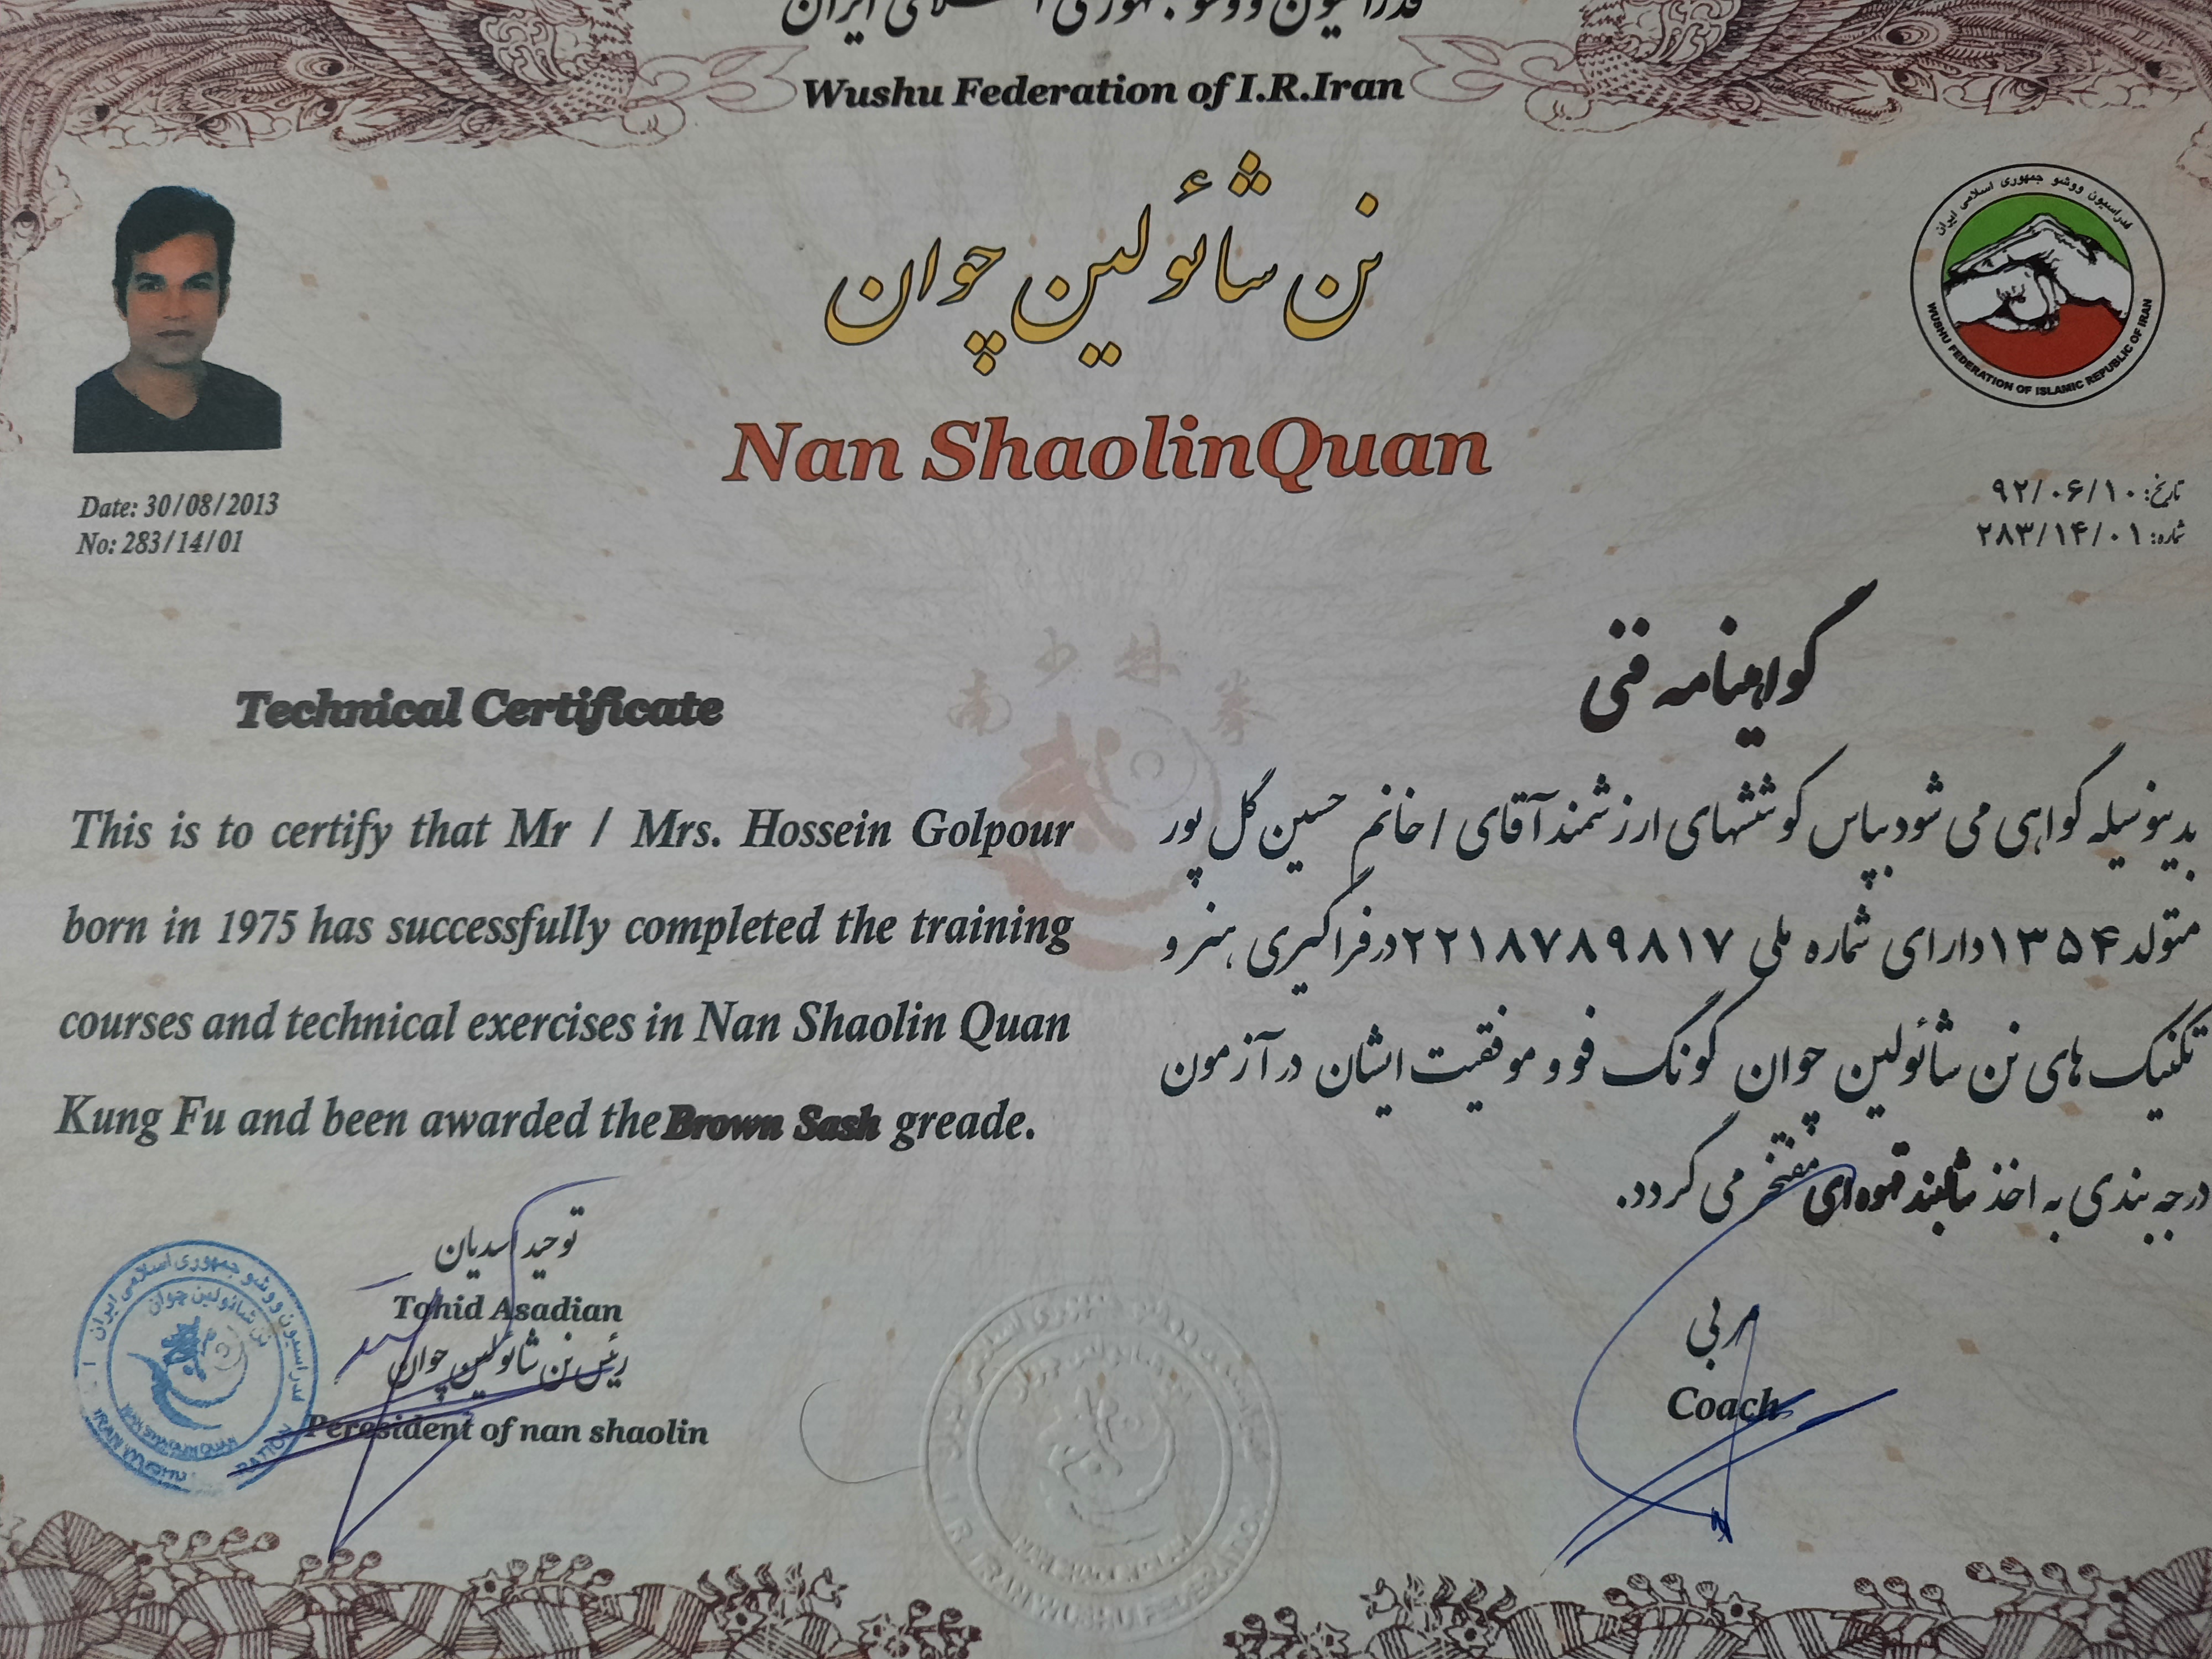 Wushu Federation of I.R.Iran
نن شائولین چوان
Nan ShaolinQuan
فدراسیون ووشو جمهوری اسلامی ایران
WUSHU FEDERATION OF ISLAMIC REPUBLIC OF IRAN
Date: 30/08/2013
No: 283/14/01
تاریخ: ۹۲/۰۶/۱۰
شماره: ۲۸۳/۱۴/۰۱
南少林拳
Technical Certificate
This is to certify that Mr / Mrs. Hossein Golpour
born in 1975 has successfully completed the training
courses and technical exercises in Nan Shaolin Quan
Kung Fu and been awarded the Brown Sash greade.
گواهینامه فنی
بدینوسیله گواهی می شود بپاس کوششهای ارزشمند آقای / خانم حسین گل پور
متولد ۱۳۵۴ دارای شماره ملی ۲۲۱۸۷۸۹۸۱۷ در فراگیری هنر و
تکنیک های نن شائولین چوان کونگ فو و موفقیت ایشان در آزمون
درجه بندی به اخذ شالبند قهوه ای مفتخر می گردد.
توحید اسدیان
Tohid Asadian
رئیس نن شائولین چوان
Peresident of nan shaolin
مربی
Coach
فدراسیون ووشو جمهوری اسلامی ایران
نن شائولین چوان
NAN SHAOLIN QUAN
I.R. IRAN WUSHU FEDERATION